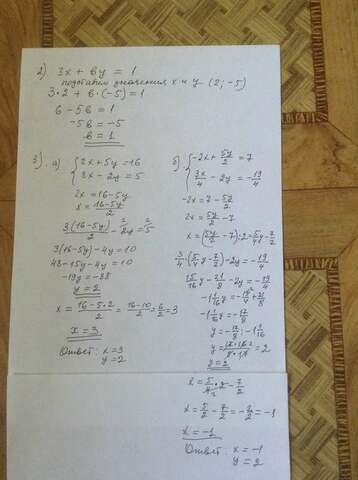 2) 3x + by = 1
подставим значения x и y (2; -5)
3·2 + b·(-5) = 1
6 - 5b = 1
-5b = -5
b = 1
3) а) { 2x + 5y = 16
3x - 2y = 5
2x = 16-5y
x = (16-5y)/2
3(16-5y)/2 - 2y = 5
3(16-5y) - 4y = 10
48-15y-4y = 10
-19y = -38
y = 2
x = (16-5·2)/2 = (16-10)/2 = 6/2 = 3
x = 3
Ответ: x = 3
y = 2
б) { -2x + 5y/2 = 7
3x/4 - 2y = -19/4
-2x = 7 - 5y/2
2x = 5y/2 - 7
x = (5y/2 - 7):2 = 5/4 y - 7/2
3/4 (5/4 y - 7/2) - 2y = -19/4
15/16 y - 21/8 - 2y = -19/4
-1 1/16 y = -19/4 + 21/8
-1 1/16 y = -17/8
y = -17/8 : -1 1/16
y = 2
x = 5/4 · 2 - 7/2
x = 5/2 - 7/2 = -2/2 = -1
x = -1
Ответ: x = -1
y = 2